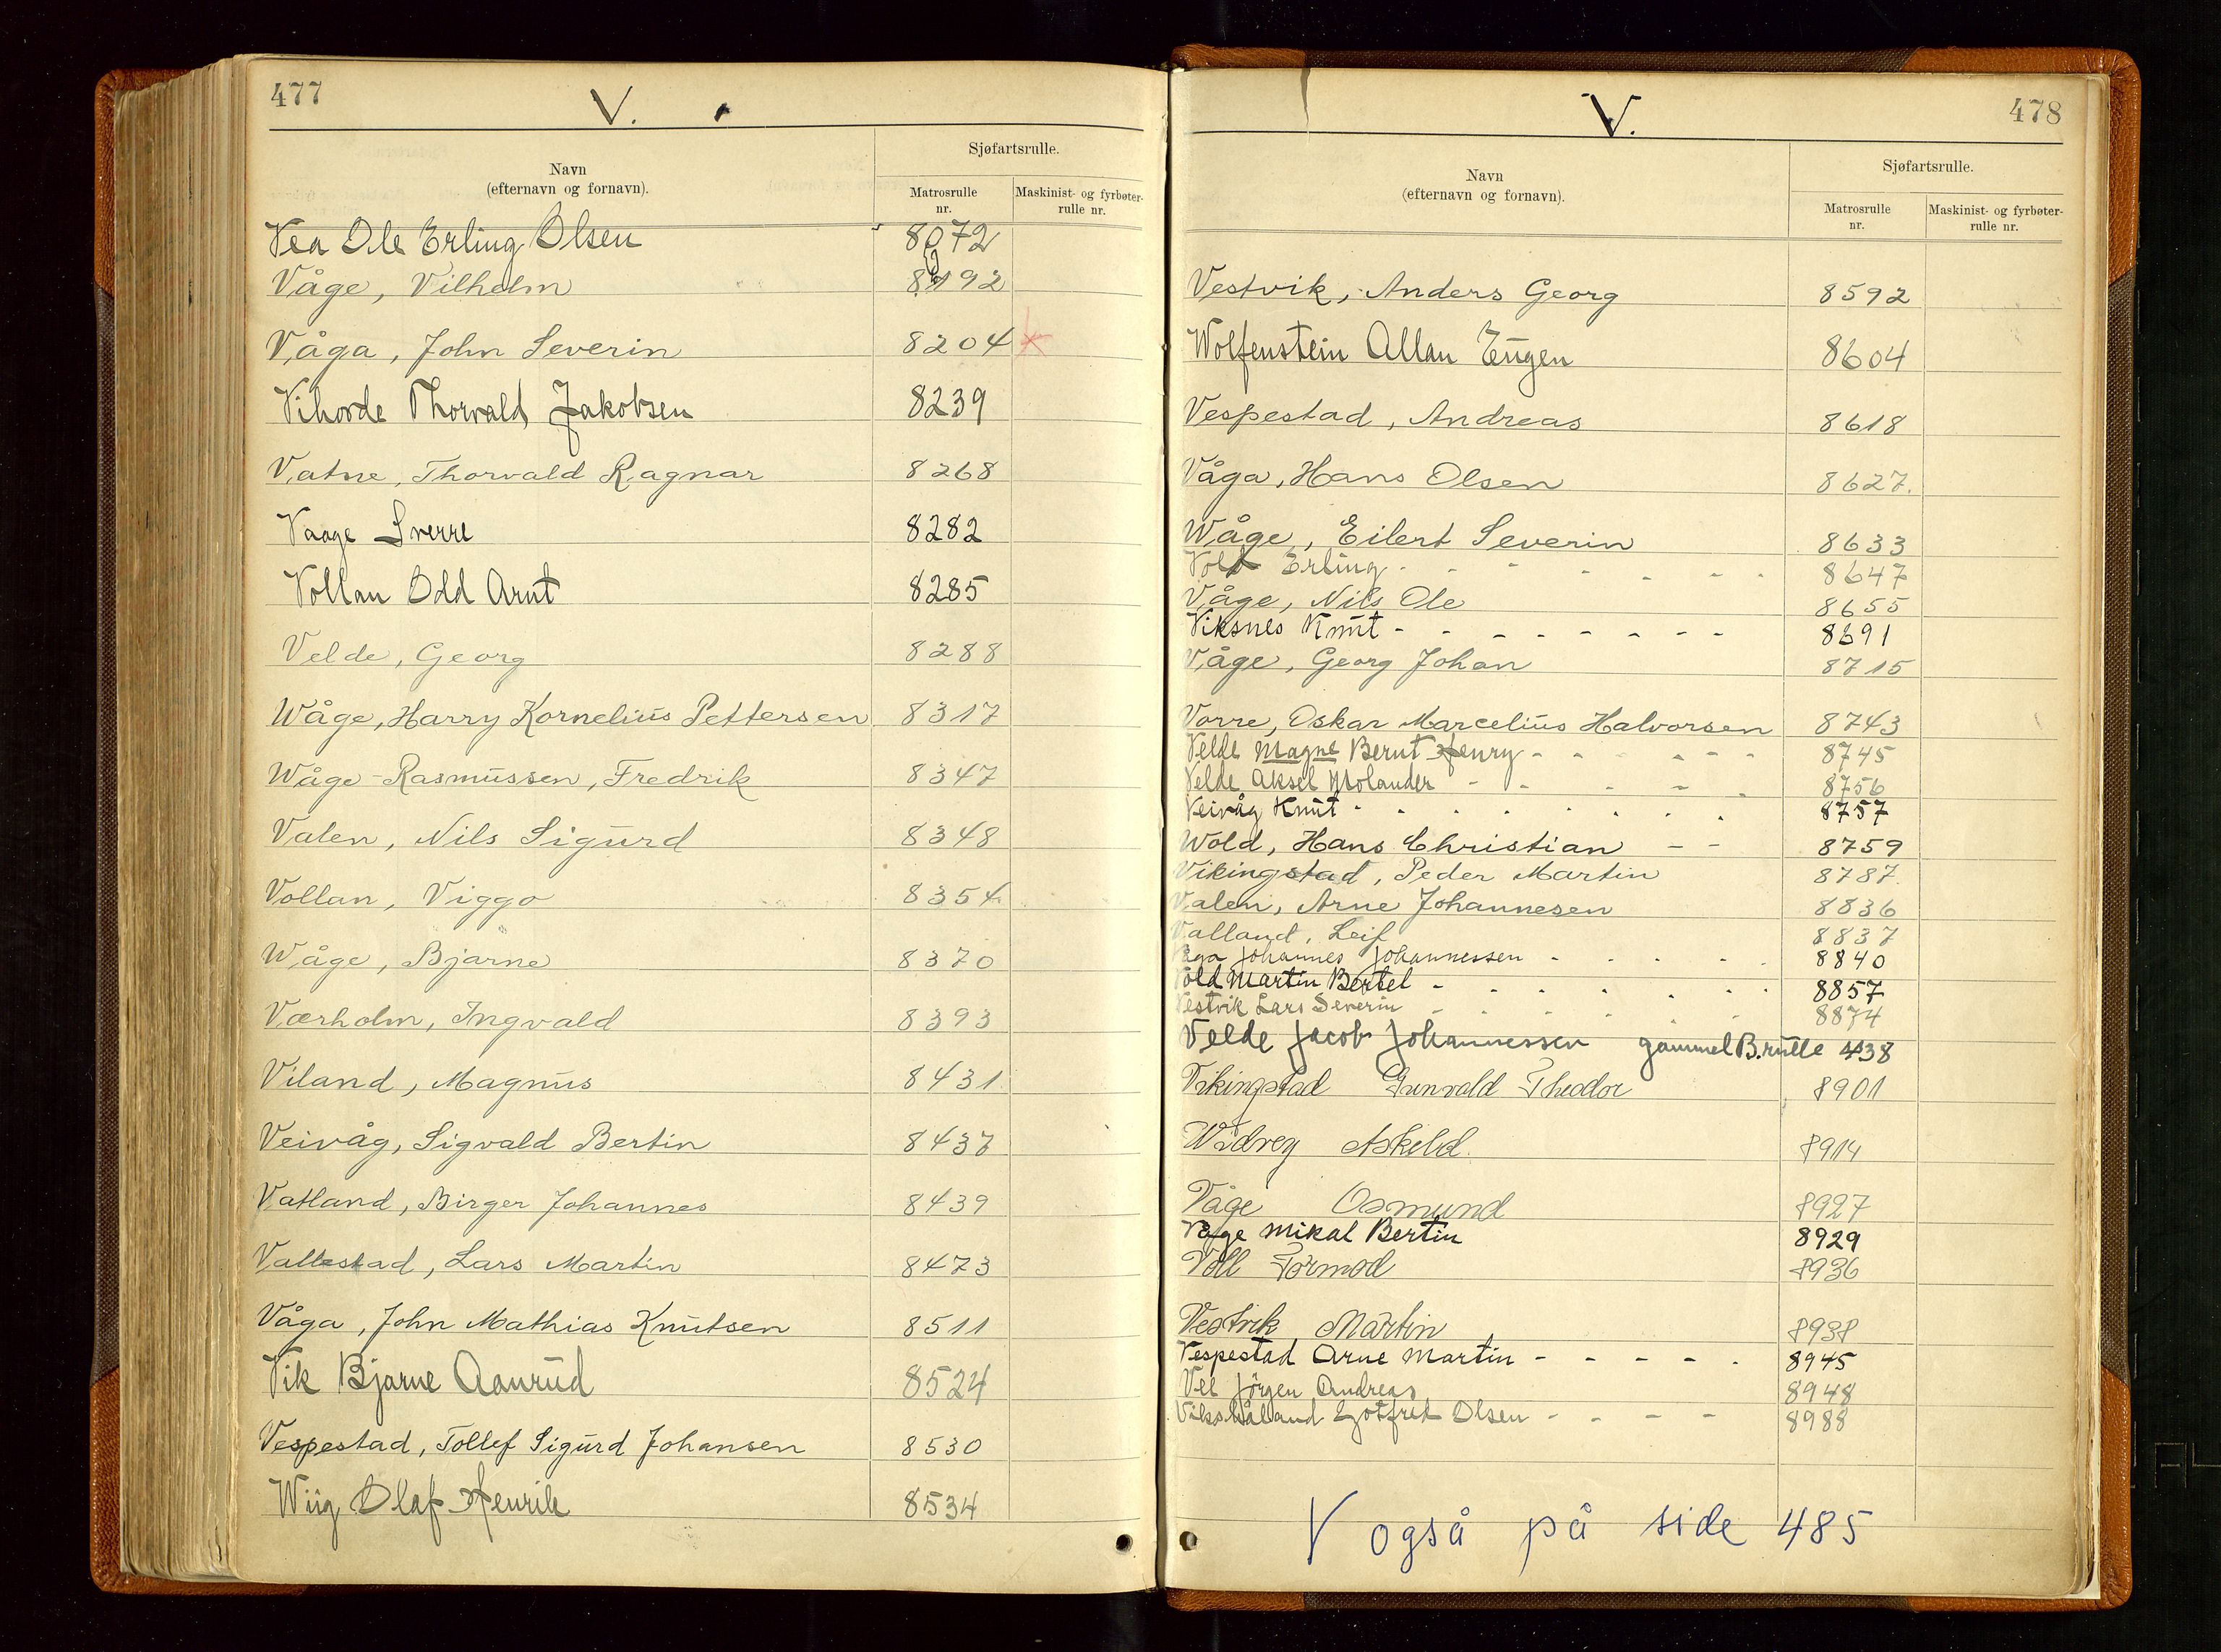 477
V.
Navn
(efternavn og fornavn).
Sjøfartsrulle.
Matrosrulle
nr.
Maskinist- og fyrbøter-
rulle nr.
Vea Ole Erling Olsen 8072
Våge, Vilhelm 8192
Våga, John Severin 8204
Vihovde Thorvald Jakobsen 8239
Vatne, Thorvald Ragnar 8268
Vaage Sverre 8282
Vollan Odd Arnt 8285
Velde, Georg 8288
Wåge, Harry Kornelius Pettersen 8317
Wåge-Rasmussen, Fredrik 8347
Valen, Nils Sigurd 8348
Vollan, Viggo 8354
Wåge, Bjarne 8370
Værholm, Ingvald 8393
Viland, Magnus 8431
Veivåg, Sigvald Bertin 8437
Vatland, Birger Johannes 8439
Vallestad, Lars Martin 8473
Våga, John Mathias Knutsen 8511
Vik Bjarne Aanrud 8524
Vespestad, Tollef Sigurd Johansen 8530
Wiig Olaf Henrik 8534
478
V.
Navn
(efternavn og fornavn).
Sjøfartsrulle.
Matrosrulle
nr.
Maskinist- og fyrbøter-
rulle nr.
Vestvik, Anders Georg 8592
Wolfenstein Allan Eugen 8604
Vespestad, Andreas 8618
Våga, Hans Olsen 8627.
Wåge, Eilert Severin 8633
Vold Erling - - - - - - - 8647
Våge, Nils Ole 8655
Viksnes Knut - - - - - - - - 8691
Våge, Georg Johan 8715
Vorre, Oskar Marcelius Halvorsen 8743
Velde Magne Bernt Henry - - - - - 8745
Velde Aksel Molander - - - - - 8756
Veivåg Knut - - - - - - - - 8757
Wold, Hans Christian - - 8759
Vikingstad, Peder Martin 8787
Valen, Arne Johannesen 8836
Valland, Leif 8837
Våga Johannes Johannessen - - - - - 8840
Vold Martin Bertel - - - - - - - 8857
Vestvik Lars Severin - - - - - - 8874
Velde Jacob Johannessen gammel B.rulle 438
Vikingstad Gunvald Theodor 8901
Askeld. 8914
Våge Osmund 8927
Våge Mikal Bertin 8929
Voll Tormod 8936
Vestvik, Martin 8938
Vespestad Arne Martin - - - - - 8945
Vel Jörgen Andreas 8948
Gotfred Olsen - - - - 8988
V også på side 485